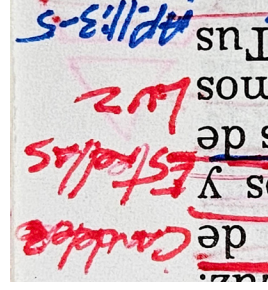 uz:
de Candelero
s y Estrellas
s de
mos Luz
Tus Apli:3-5